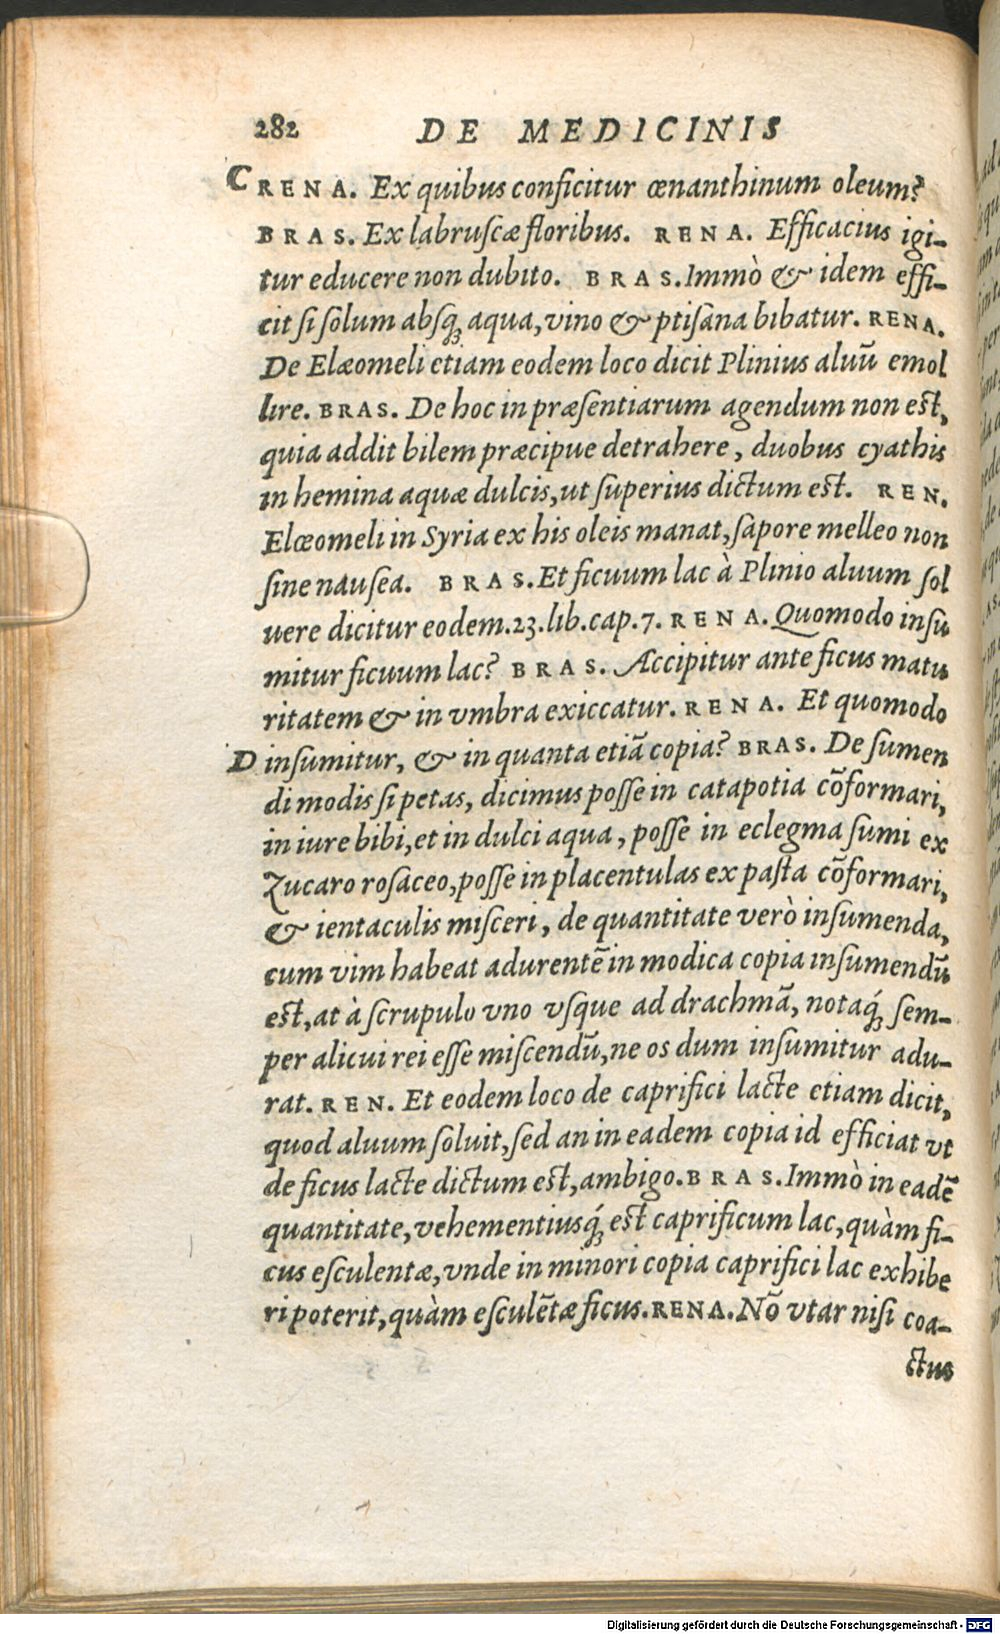 282 DE MEDICINIS
C RENA. Ex quibus conficitur œnanthinum oleum?
BRAS. Ex labruſcæ floribus. RENA. Efficacius igi-
tur educere non dubito. BRAS. Immò & idem effi-
cit ſi ſolum abſq; aqua, vino & ptiſana bibatur. RENA.
De Elæomeli etiam eodem loco dicit Plinius aluū emol
lire. BRAS. De hoc in præſentiarum agendum non eſt,
quia addit bilem præcipue detrahere, duobus cyathis
in hemina aquæ dulcis, ut ſuperius dictum eſt. REN.
Elœomeli in Syria ex his oleis manat, ſapore melleo non
ſine nauſea. BRAS. Et ficuum lac à Plinio aluum ſol
uere dicitur eodem. 23. lib. cap. 7. RENA. Quomodo inſu
mitur ficuum lac? BRAS. Accipitur ante ficus matu
ritatem & in vmbra exiccatur. RENA. Et quomodo
D inſumitur, & in quanta etiā copia? BRAS. De ſumen
di modis ſi petas, dicimus poſſe in catapotia cōformari,
in iure bibi, et in dulci aqua, poſſe in eclegma ſumi ex
Zucaro roſaceo, poſſe in placentulas ex paſta cōformari,
& ientaculis miſceri, de quantitate verò inſumenda,
cum vim habeat adurentē in modica copia inſumendū
eſt, at à ſcrupulo vno vſque ad drachmā, notaq́; ſem-
per alicui rei eſſe miſcendū, ne os dum inſumitur adu-
rat. REN. Et eodem loco de caprifici lacte etiam dicit,
quod aluum ſoluit, ſed an in eadem copia id efficiat vt
de ficus lacte dictum eſt, ambigo. BRAS. Immò in eadē
quantitate, vehementiusq́; eſt caprificum lac, quàm fi-
cus eſculentæ, vnde in minori copia caprifici lac exhibe
ri poterit, quàm eſculētæ ficus. RENA. Nō vtar niſi coa-
ctus
Digitalisierung gefördert durch die Deutsche Forschungsgemeinschaft - DFG